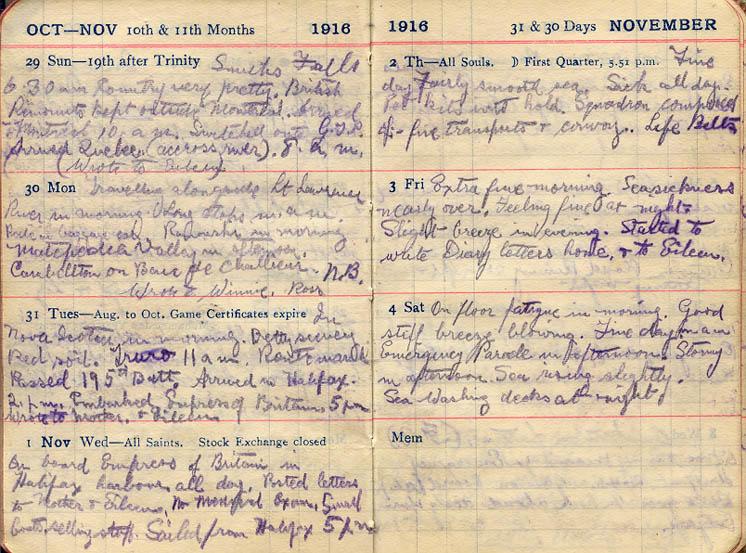 OCT—NOV 10th & 11th Months 1916
29 Sun—19th after Trinity Smiths Falls
6.30 am Country very pretty. British
kept outside Montreal. Arrived
Montreal 10. a.m. Switched onto G.T.R.
Arrived Quebec (accross river). 8. a. m.
(Wrote to Eileen)
30 Mon Travelling alongside St Lawrence
River in morning Long stops in a.m.
in morning
Matapedia Valley in afternoon.
Cambellton on Baie de Challieur. N.B.
Wrote Winnie, Ross
31 Tues—Aug. to Oct. Game Certificates expire In
Nova Scotia in morning. Pretty scenery
Red soil. Truro 11 a m. Route march
Passed 195th Batt. Arrived in Halifax.
2. p.m. Embarked Empress of Britain 5 pm
Wrote to Mother. & Eileen
1 Nov Wed—All Saints. Stock Exchange closed
On board Empress of Britain in
Halifax harbour all day. Posted letters
to Mother & Eileen, No Medical Exam. Small
boats selling stop. Sailed from Halifax 5 pm
1916 31 & 30 Days NOVEMBER
2 Th—All Souls. ☽ First Quarter, 5.51 p.m. Fine
day Fairly smooth sea. Sick all day.
Put kits into hold. Squadron composed
of five transports & convoy. Life Belts
3 Fri Extra fine morning. Seasickness
nearly over. Feeling fine at night.
Slight breeze in evening. Started to
write Diary letters home, & to Eileen.
4 Sat On floor fatigue in morning. Good
stiff breeze blowing. Fine day in am
Emergency Parade in afternoon. Stormy
in afternoon. Sea rising slightly.
Sea washing decks at night
Mem